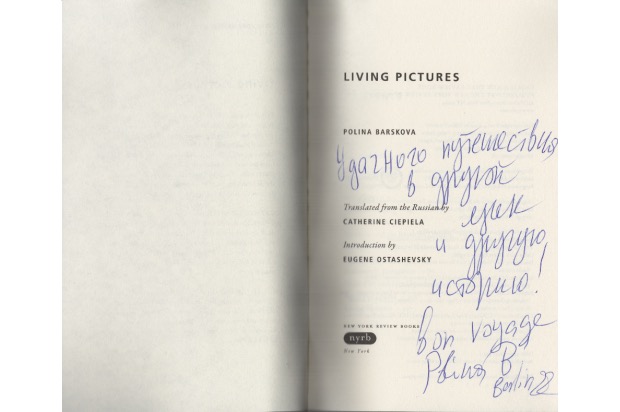 LIVING PICTURES
POLINA BARSKOVA
Удачного путешествия
в другой
язык
Translated from the Russian by
CATHERINE CIEPIELA
и другую
Introduction by
EUGENE OSTASHEVSKY
историю!
NEW YORK REVIEW BOOKS
nyrb
New York
bon voyage
Polina B
Berlin 22